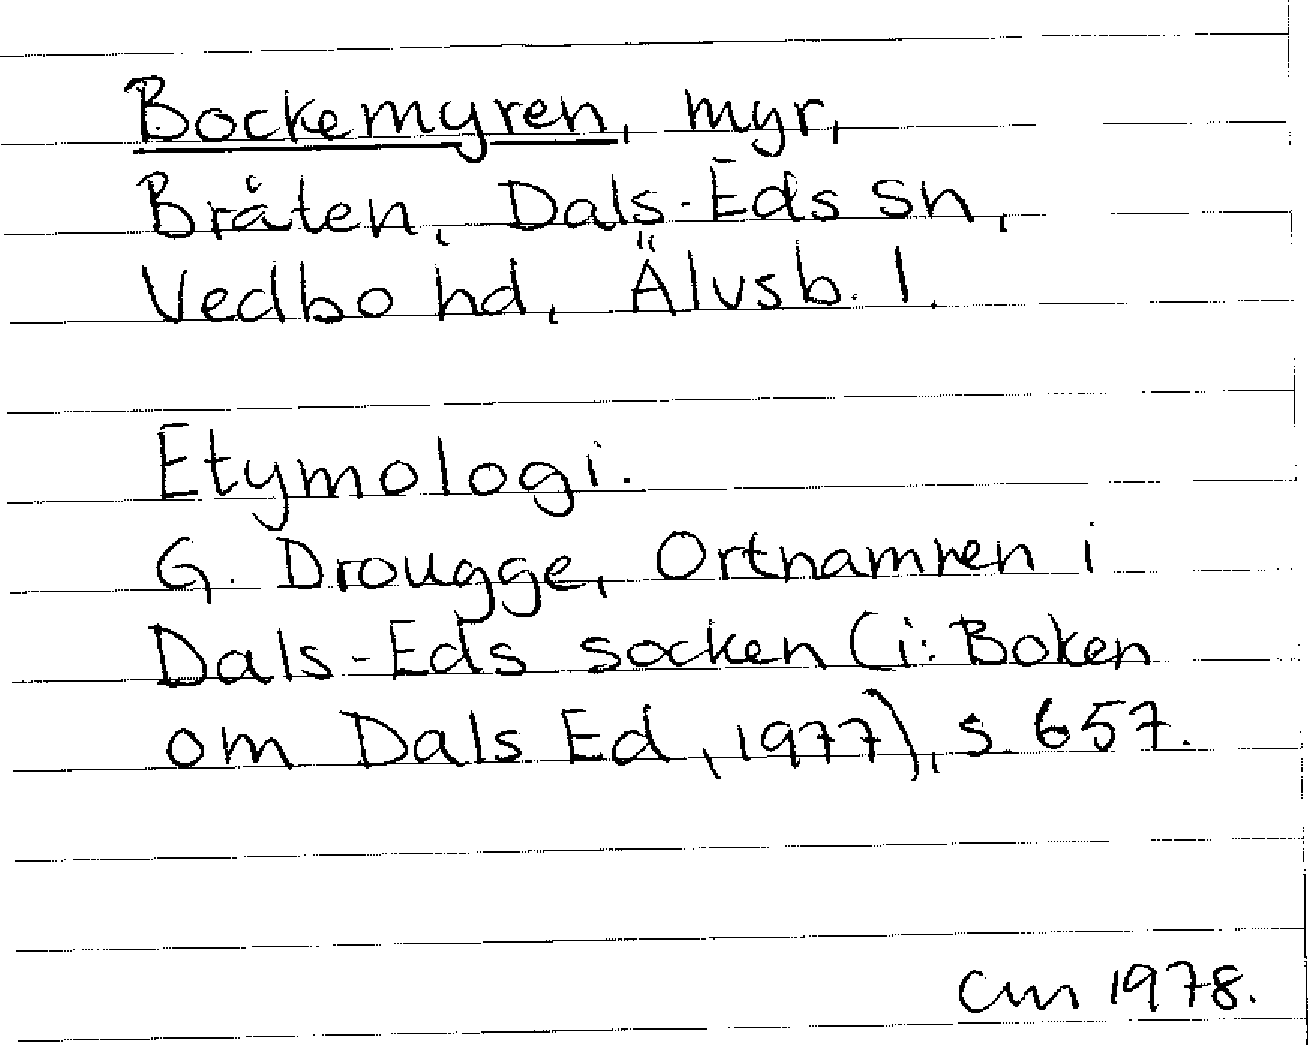 Bockemyren, myr,
Bråten, Dals-Eds sn,
Vedbo hd, Älvsb. l.
Etymologi.
G. Drougge, Ortnamnen i
Dals-Eds socken (i: Boken
om Dals Ed, 1977), s 657.
Cm 1978.